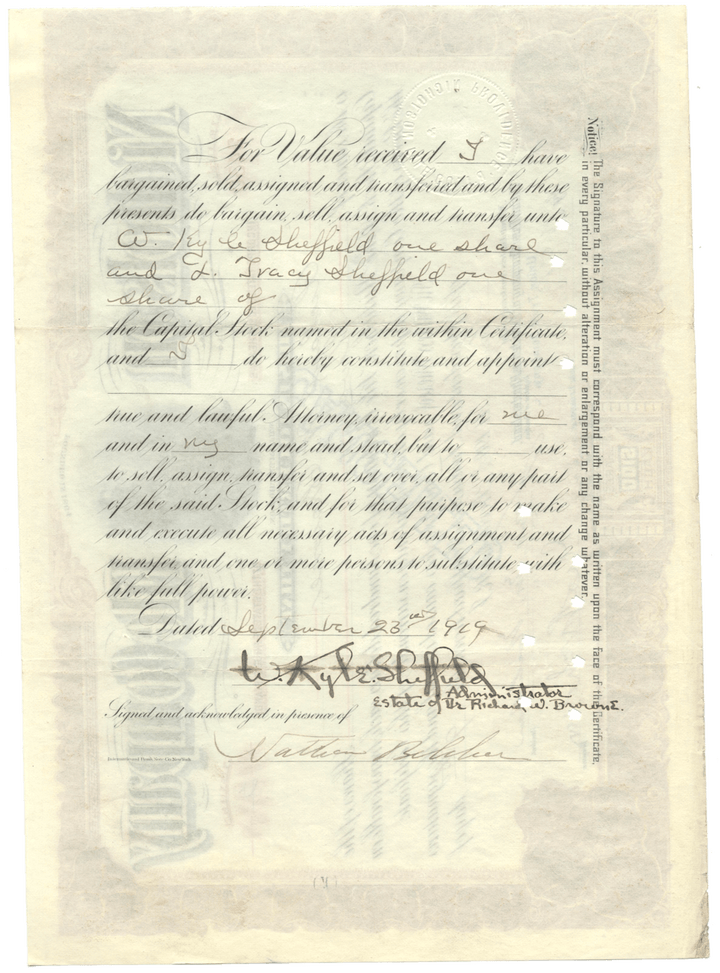 For Value received I have
bargained, sold, assigned and transferred and by these
presents do bargain, sell, assign and transfer unto
W. Kyle Sheffield one share
and L. Tracy Sheffield one
share of
the Capital Stock named in the within Certificate,
and do hereby constitute and appoint
true and lawful Attorney, irrevocable, for me
and in my name and stead, but to use,
to sell, assign, transfer and set over, all or any part
of the said Stock, and for that purpose to make
and execute all necessary acts of assignment and
transfer, and one or more persons to substitute with
like full power.
Dated September 23rd 1919
W. Kyle Sheffield
Administrator
Estate of Dr Richard W. Browne.
Signed and acknowledged in presence of
Nathan Belcher
Notice! The Signature to this Assignment must correspond with the name as written upon the face of the Certificate,
in every particular, without alteration or enlargement or any change whatever.